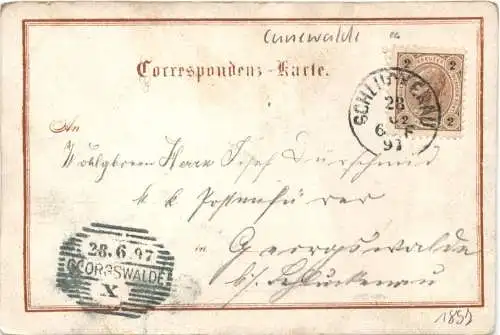 Correspondenz-Karte.
2 2
SCHLUCKENAU
28
97
2 2
An
Wohlgboren Herrn Josef Dürschmid
k k Postenführer
in Georgswalde
bei Schluckenau
28.6.97
GEORGSWALDE
X